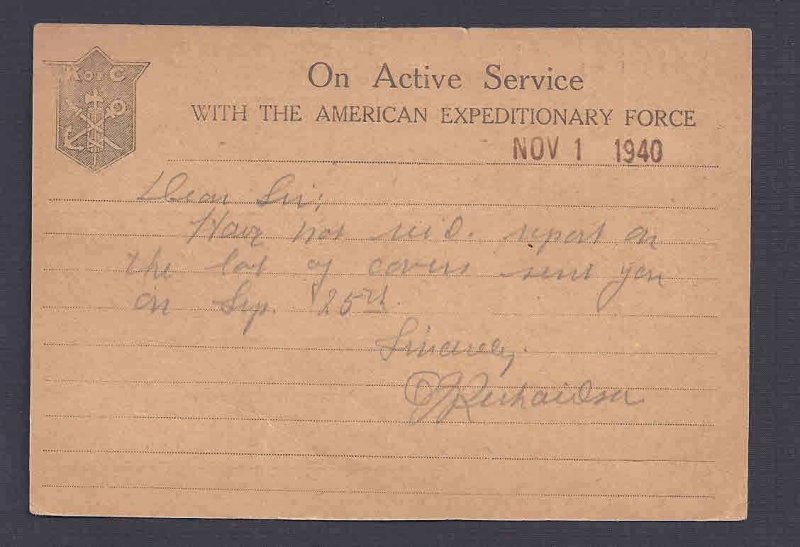 K of C
On Active Service
WITH THE AMERICAN EXPEDITIONARY FORCE
NOV 1 1940
Dear Sir;
Have not rec'd. report on
the lot of covers sent you
on Sep. 25th.
Sincerely,
Richardson